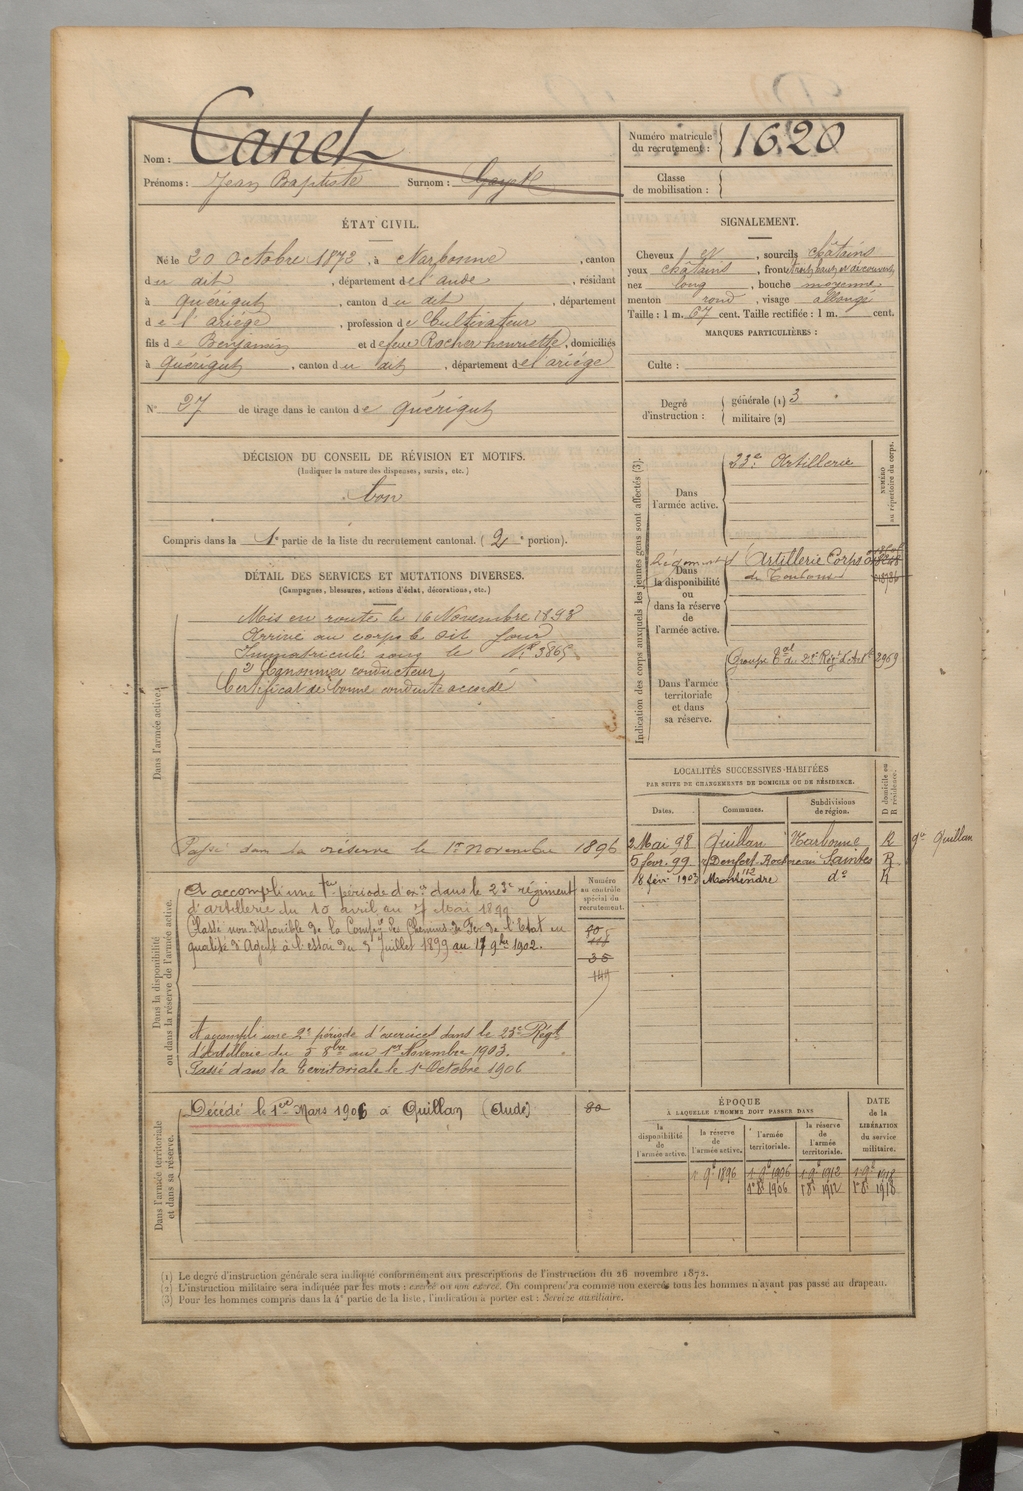 Nom : Canet
Prénoms : Jean Baptiste Surnom : Gayet
Numéro matricule du recrutement : 1620
Classe de mobilisation :
ÉTAT CIVIL.
Né le 20 Octobre 1872, à Narbonne, canton
du dit, département de l'aude, résidant
à quérigut, canton du dit, département
de l'ariége, profession de Cultivateur
fils de Benjamin et de feue Rocher henriette, domiciliés
à quérigut, canton du dit, département de l'ariége
N° 27 de tirage dans le canton de quérigut
SIGNALEMENT.
Cheveux et, sourcils châtains
yeux châtains, front haut et découvert,
nez long, bouche moyenne
menton rond, visage allongé
Taille : 1 m. 67 cent. Taille rectifiée : 1 m. cent.
MARQUES PARTICULIÈRES :
Culte :
Degré d'instruction : générale (1) 3
militaire (2)
DÉCISION DU CONSEIL DE RÉVISION ET MOTIFS.
(Indiquer la nature des dispenses, sursis, etc.)
bon
Compris dans la 1e partie de la liste du recrutement cantonal. (2e portion).
DÉTAIL DES SERVICES ET MUTATIONS DIVERSES.
(Campagnes, blessures, actions d'éclat, décorations, etc.)
Dans l'armée active.
Mis en route le 16 Novembre 1893
Arrivé au corps le dit jour
Immatriculé sous le N° 3865
2e Canonnier conducteur
Certificat de bonne conduite accordé
Passé dans la réserve le 1er novembre 1896
Indication des corps auxquels les jeunes gens sont affectés (3).
NUMÉRO au répertoire du corps.
Dans l'armée active.
23e Artillerie
Dans la disponibilité ou dans la réserve de l'armée active.
Artillerie Corps
de Toulouse
Dans l'armée territoriale et dans sa réserve.
Groupe tal du 2e Rég d'Art 2969
LOCALITÉS SUCCESSIVES HABITÉES
PAR SUITE DE CHANGEMENTS DE DOMICILE OU DE RÉSIDENCE.
Dates. Communes. Subdivisions de région. D domicile ou R résidence.
2 Mai 98 Quillan Narbonne R
go Quillan
5 févr. 99 Denfert-Rochereau Saintes R
18 févr 1903 Montendre do R
Dans la disponibilité ou dans la réserve de l'armée active.
Numéro au contrôle spécial du recrutement.
A accompli une 1re période d'exces dans le 23e régiment
d'artillerie du 10 avril au 7 Mai 1899
Classé non disponible de la Compie des Chemins de Fer de l'Etat en
qualité d'Agent à l'essai du 5 Juillet 1899 au 17 9bre 1902.
A accompli une 2e période d'exercices dans le 23e Régt
d'Artillerie du 5 8bre au 1er Novembre 1903.
Passé dans la territoriale le 1er Octobre 1906
Dans l'armée territoriale et dans sa réserve.
Décédé le 1er Mars 1906 à Quillan (Aude)
ÉPOQUE
À LAQUELLE L'HOMME DOIT PASSER DANS
DATE de la LIBÉRATION du service militaire.
la disponibilité de l'armée active. la réserve de l'armée active. l'armée territoriale. la réserve de l'armée territoriale.
1 9e 1896 1 9e 1906 1 9e 1912 1 9e 1918
1er 8e 1906 1er 8e 1912 1er 8e 1918
(1) Le degré d'instruction générale sera indiqué conformément aux prescriptions de l'instruction du 26 novembre 1872.
(2) L'instruction militaire sera indiquée par les mots : exercé ou non exercé. On comprendra comme non exercés tous les hommes n'ayant pas passé au drapeau.
(3) Pour les hommes compris dans la 4e partie de la liste, l'indication à porter est : Service auxiliaire.